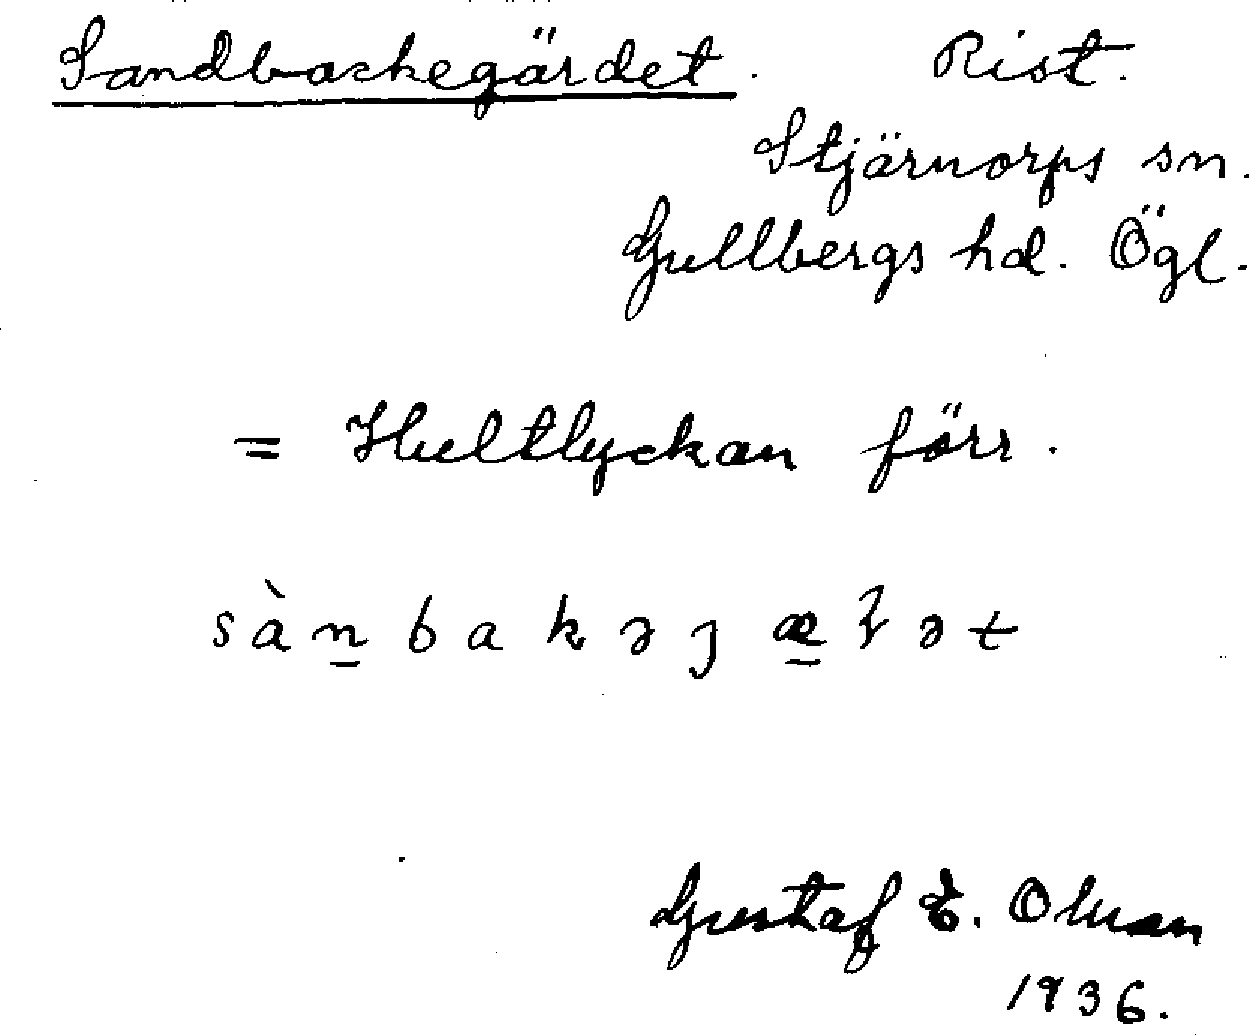 Sandbackegärdet. Rist.
Stjärnorps sn.
Gullbergs hd. Ögl.
= Hultlyckan förr.
Gustaf E. Olsson
1936.